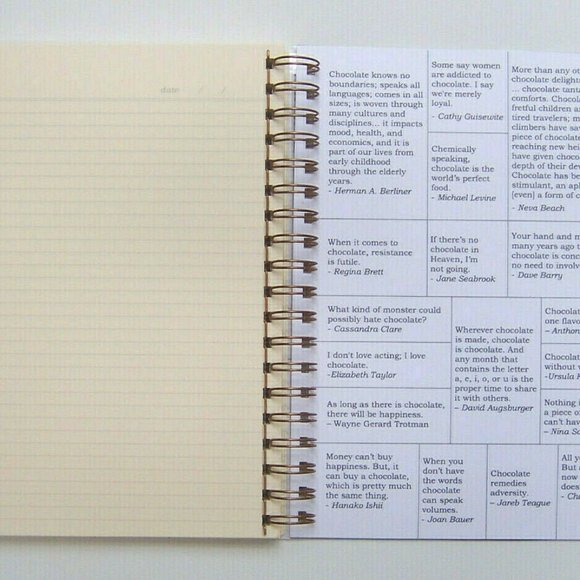 date / /
Chocolate knows no
boundaries; speaks all
languages; comes in all
sizes, is woven through
many cultures and
disciplines... it impacts
mood, health, and
economics, and it is
part of our lives from
early childhood
through the elderly
years.
- Herman A. Berliner
Some say women
are addicted to
chocolate. I say
we're merely
loyal.
- Cathy Guisewite
Chemically
speaking,
chocolate is the
world's perfect
food.
- Michael Levine
More than any
chocolate delights
... chocolate
comforts. Chocolate
fretful children
tired travelers;
climbers have
piece of chocolate
reaching new
have given
depth of their
Chocolate has
stimulant, an
[even] a form of
- Neva Beach
When it comes to
chocolate, resistance
is futile.
- Regina Brett
If there's no
chocolate in
Heaven, I'm
not going.
- Jane Seabrook
Your hand and
many years ago
chocolate is
no need to
- Dave Barry
What kind of monster could
possibly hate chocolate?
- Cassandra Clare
I don't love acting; I love
chocolate.
-Elizabeth Taylor
As long as there is chocolate,
there will be happiness.
– Wayne Gerard Trotman
Wherever chocolate
is made, chocolate
is chocolate. And
any month that
contains the letter
a, e, i, o, or u is the
proper time to share
it with others.
– David Augsburger
one
without
-Ursula
Nothing
a piece
can't
– Nina
Money can't buy
happiness. But, it
can buy a chocolate,
which is pretty much
the same thing.
- Hanako Ishii
When you
don't have
the words
chocolate
can speak
volumes.
- Joan Bauer
Chocolate
remedies
adversity.
– Jareb Teague
All
But
now
does